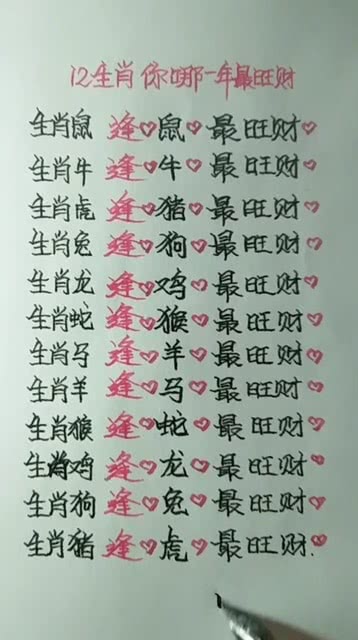 12生肖你哪一年最旺财
生肖鼠 逢♡鼠♡最旺财♡
生肖牛 逢♡牛♡最旺财♡
生肖虎 逢♡猪♡最旺财♡
生肖兔 逢♡狗♡最旺财♡
生肖龙 逢♡鸡♡最旺财♡
生肖蛇 逢♡猴♡最旺财♡
生肖马 逢♡羊♡最旺财♡
生肖羊 逢♡马♡最旺财♡
生肖猴 逢♡蛇♡最旺财♡
生肖鸡 逢♡龙♡最旺财♡
生肖狗 逢♡兔♡最旺财♡
生肖猪 逢♡虎♡最旺财♡